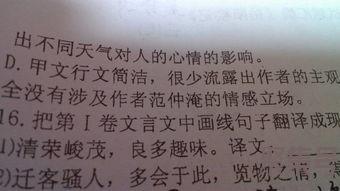 出不同天气对人的心情的影响。
D. 甲文行文简洁，很少流露出作者的主观
全没有涉及作者范仲淹的情感立场。
16. 把第Ⅰ卷文言文中画线句子翻译成现
1)清荣峻茂，良多趣味。译文：
2)迁客骚人，多会于此，览物之情，得